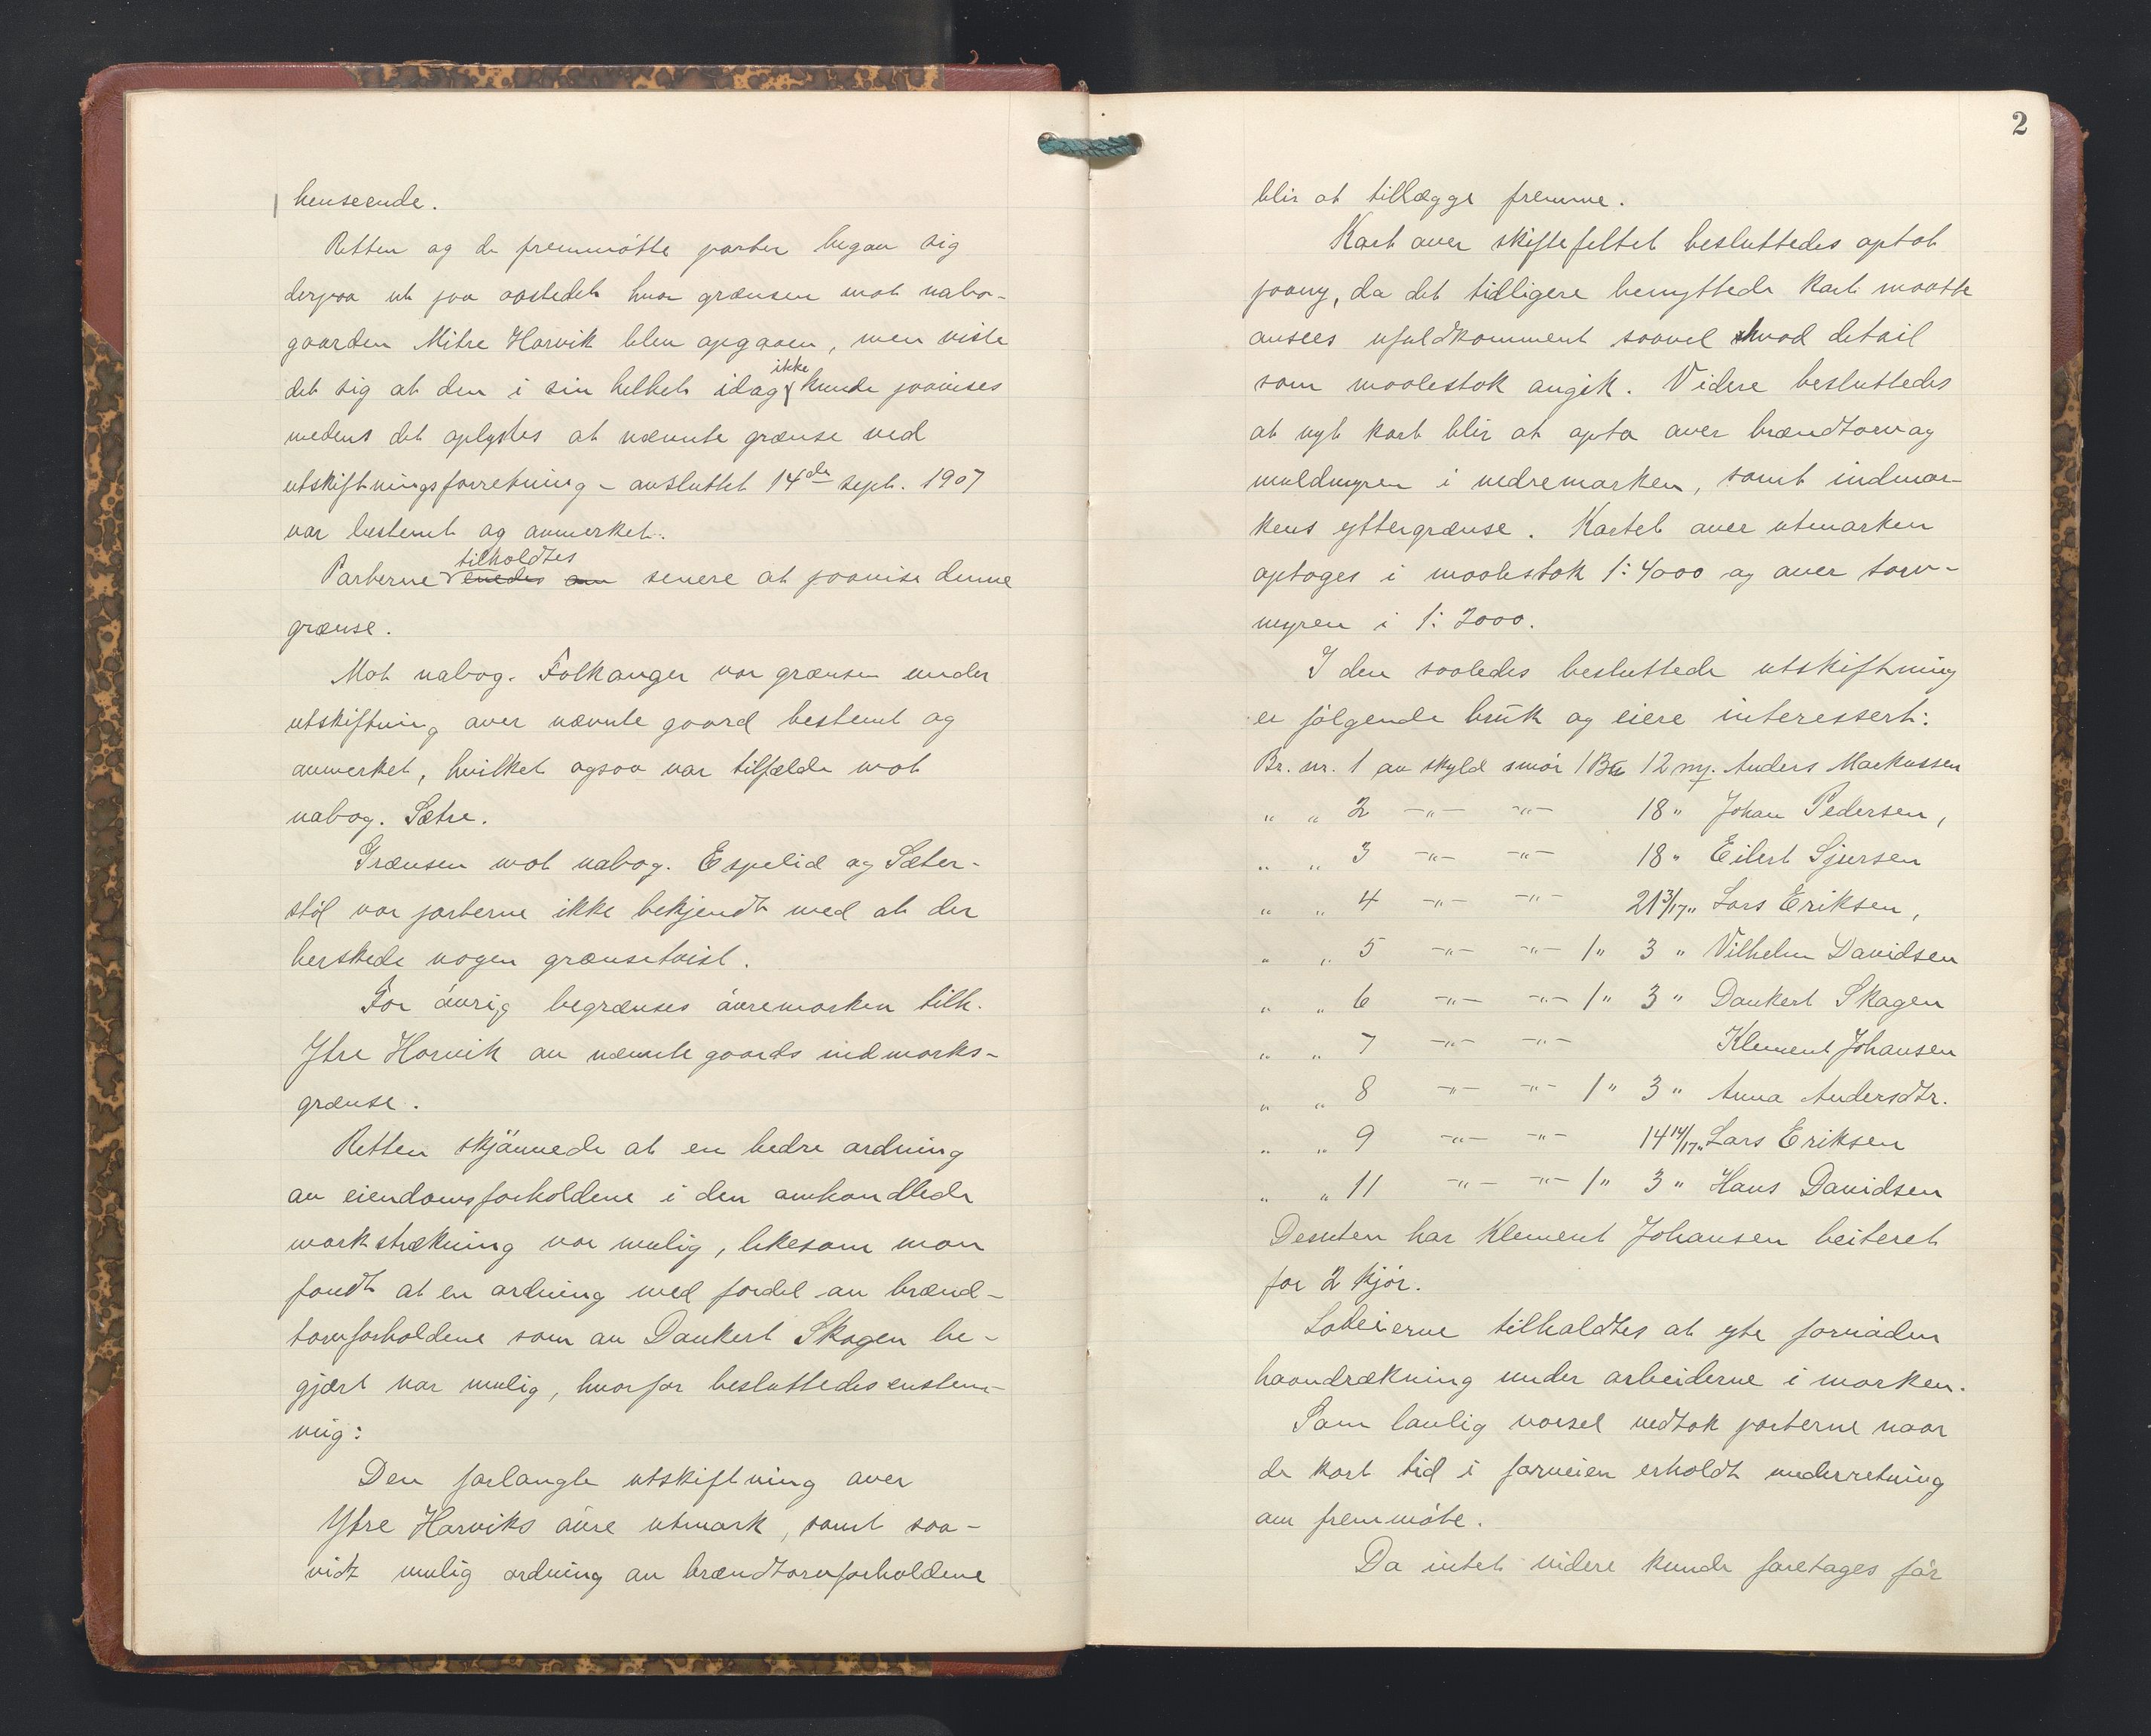 henseende.
Retten og de fremmøtte parter begav sig
derpaa ut paa aastedet hvor grænsen mot nabo-
gaarden Mitre Horvik blev opgaaen, men viste
ikke
det sig at den i sin helhet idag kunde paavises
medens det oplystes at nævnte grænse ved
utskiftningsforretning - avsluttet 14de sept. 1907
var bestemt og avmerket.
tilholdtes
Parterne enedes om senere at paavise denne
grænse.
Mot nabog. Folkanger var grænsen under
utskiftning over nævnte gaard bestemt og
avmerket, hvilket ogsaa var tilfælde mot
nabog. Sætre.
Grænsen mot nabog. Espelid og Sæter-
støl var parterne ikke bekjendt med at der
herskede nogen grænsetvist.
For øvrig begrænses øvremarken tilh.
Ytre Horvik av nævnte gaards indmarks-
grænse.
Retten skjønnede at en bedre ordning
av eiendomsforholdene i den omhandlede
markstrækning var mulig, likesom man
fandt at en ordning med fordel av brænd-
torvforholdene som av Dankert Skagen be-
gjært var mulig, hvorfor besluttedes enstem-
mig:
Den forlangte utskiftning over
Ytre Horviks øvre utmark, samt saa-
vidt mulig ordning av brændtorvforholdene
2
blir at tillægge fremme.
Kart over skiftefeltet besluttedes optat
paany, da det tidligere benyttede kart maatte
ansees ufuldkomment saavel hvad detail
som maalestok angik. Videre besluttedes
at nyt kart blir at opta over brændtorv og
muldmyren i nedremarken, samt indmar-
kens yttergrænse. Kartet over utmarken
optages i maalestok 1:4000 og over torv-
myren i 1:2000.
I den saaledes besluttede utskiftning
er følgende bruk og eiere interessert:
Br. nr. 1 av skyld smør 1 B 12 m. Anders Markussen
" " 2 -"- -"- 18 " Johan Pedersen,
" " 3 -"- -"- 18 " Eilert Sjursen
" " 4 -"- -"- 21 3/17 " Lars Eriksen,
" " 5 -"- -"- 1 " 3 " Vilhelm Davidsen
" " 6 -"- -"- 1 " 3 " Dankert Skagen
" " 7 -"- -"- Klement Johansen
" " 8 -"- -"- 1 " 3 " Anna Andersdtr.
" " 9 -"- -"- 14 14/17 " Lars Eriksen
" " 11 -"- -"- 1 " 3 " Hans Davidsen
Desuten har Klement Johansen beiteret
for 2 kjør.
Lodeierne tilholdtes at yte fornøden
haandrækning under arbeiderne i marken.
Som lovlig varsel vedtok parterne naar
de kort tid i forveien erholdt underretning
om fremmøte.
Da intet videre kunde foretages før